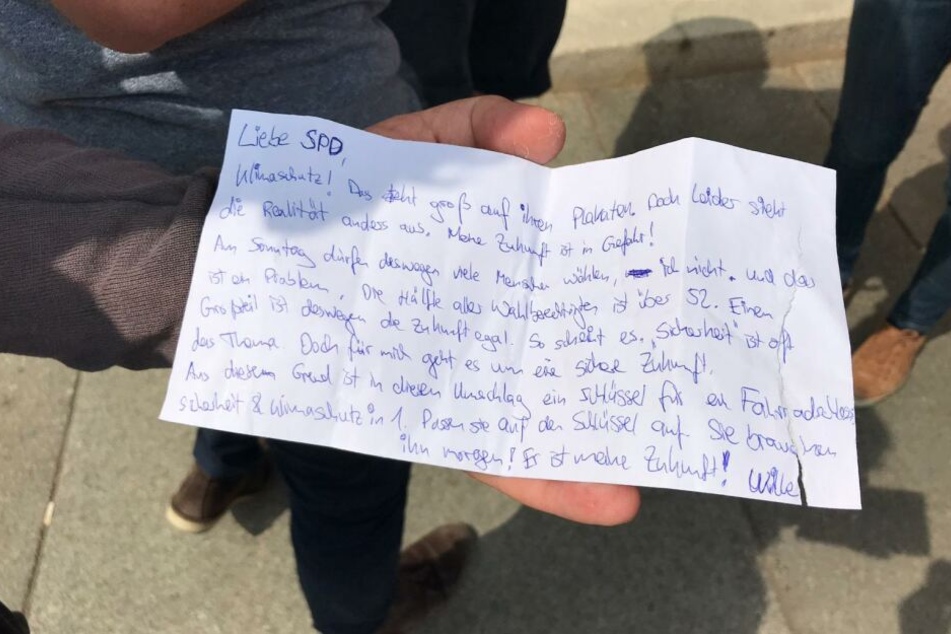 Liebe SPD,
Klimaschutz! Das steht groß auf ihren Plakaten. Doch Leider sieht
die Realität anders aus. Meine Zukunft ist in Gefahr!
Am Sonntag dürfen deswegen viele Menschen wählen, ich nicht. und das
ist ein Problem. Die Hälfte aller Wahlberechtigten ist über 52. Einem
Großteil ist deswegen die Zukunft egal. So scheint es. "Sicherheit" ist oft
das Thema. Doch für mich geht es um eine sichere Zukunft.
Aus diesem Grund ist in diesem Umschlag ein Schlüssel für ein Fahrradschloss
Sicherheit & Klimaschutz in 1. Passen sie auf den Schlüssel auf. Sie brauchen
ihn morgen! Es ist meine Zukunft!